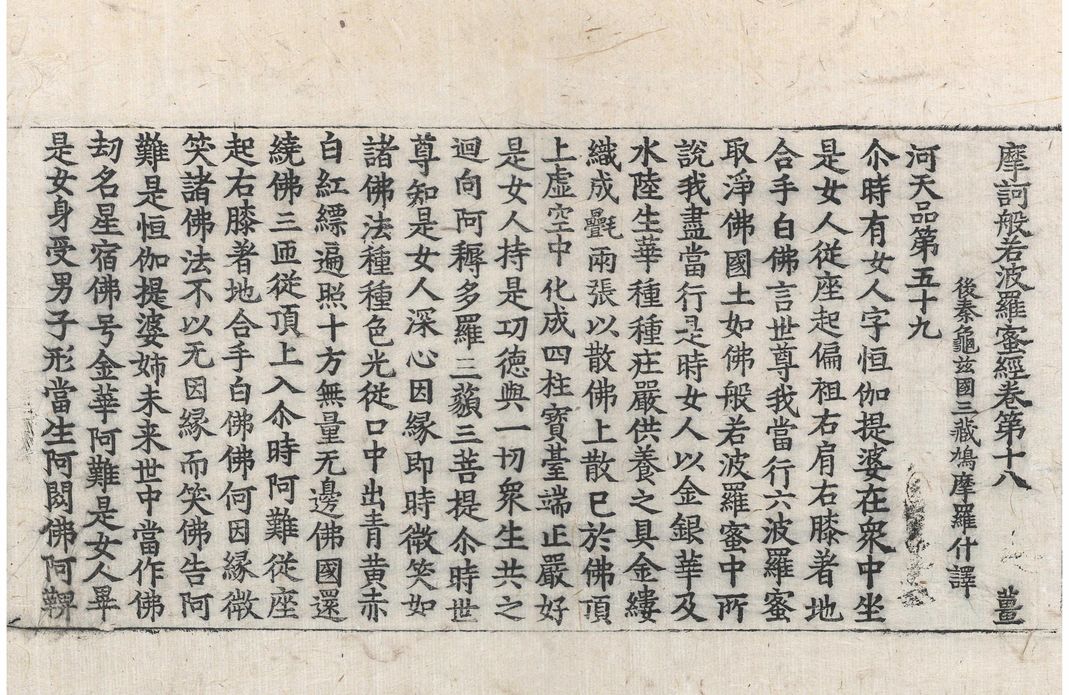 摩訶般若波羅蜜經卷第十八 薑
後秦龜茲國三藏鳩摩羅什譯
河天品第五十九
尒時有女人字恒伽提婆在衆中坐
是女人從座起偏袒右肩右膝著地
合手白佛言世尊我當行六波羅蜜
取淨佛國土如佛般若波羅蜜中所
說我盡當行是時女人以金銀華及
水陸生華種種庄嚴供養之具金縷
織成㲲兩張以散佛上散已於佛頂
上虛空中化成四柱寶臺端正嚴好
是女人持是功德與一切衆生共之
迴向阿耨多羅三藐三菩提尒時世
尊知是女人深心因緣即時微笑如
諸佛法種種色光從口中出青黃赤
白紅縹遍照十方無量无邊佛國還
繞佛三匝從頂上入尒時阿難從座
起右膝著地合手白佛佛何因緣微
笑諸佛法不以无因緣而笑佛告阿
難是恒伽提婆姉未来世中當作佛
劫名星宿佛号金華阿難是女人畢
是女身受男子形當生阿閦佛阿鞞